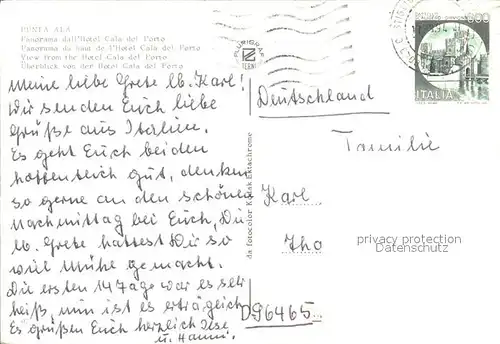 PUNTA ALA
Panorama dall'Hotel Cala del Porto
Panorama du haut de l'Hotel Cala del Porto
View from the Hotel Cala del Porto
Überblick von der Hotel Cala del Porto
PLURIGRAF
TERNI
800
ITALIA
Meine liebe Grete lb. Karl!
Wir senden Euch liebe
Grüße aus Italien.
Es geht Euch beiden
hoffentlich gut, denken
so gerne an den schönen
Nachmittag bei Euch, Du
lb. Grete hattest Dir so
viel Mühe gemacht.
Die ersten 14 Tage war es sehr
heiß, nun ist es erträglich
Es grüßen Euch herzlich Ilse
u. Hanni.
da fotocolor Kodak Ektachrome
Deutschland
Familie
Karl
D 96465
privacy protection
Datenschutz